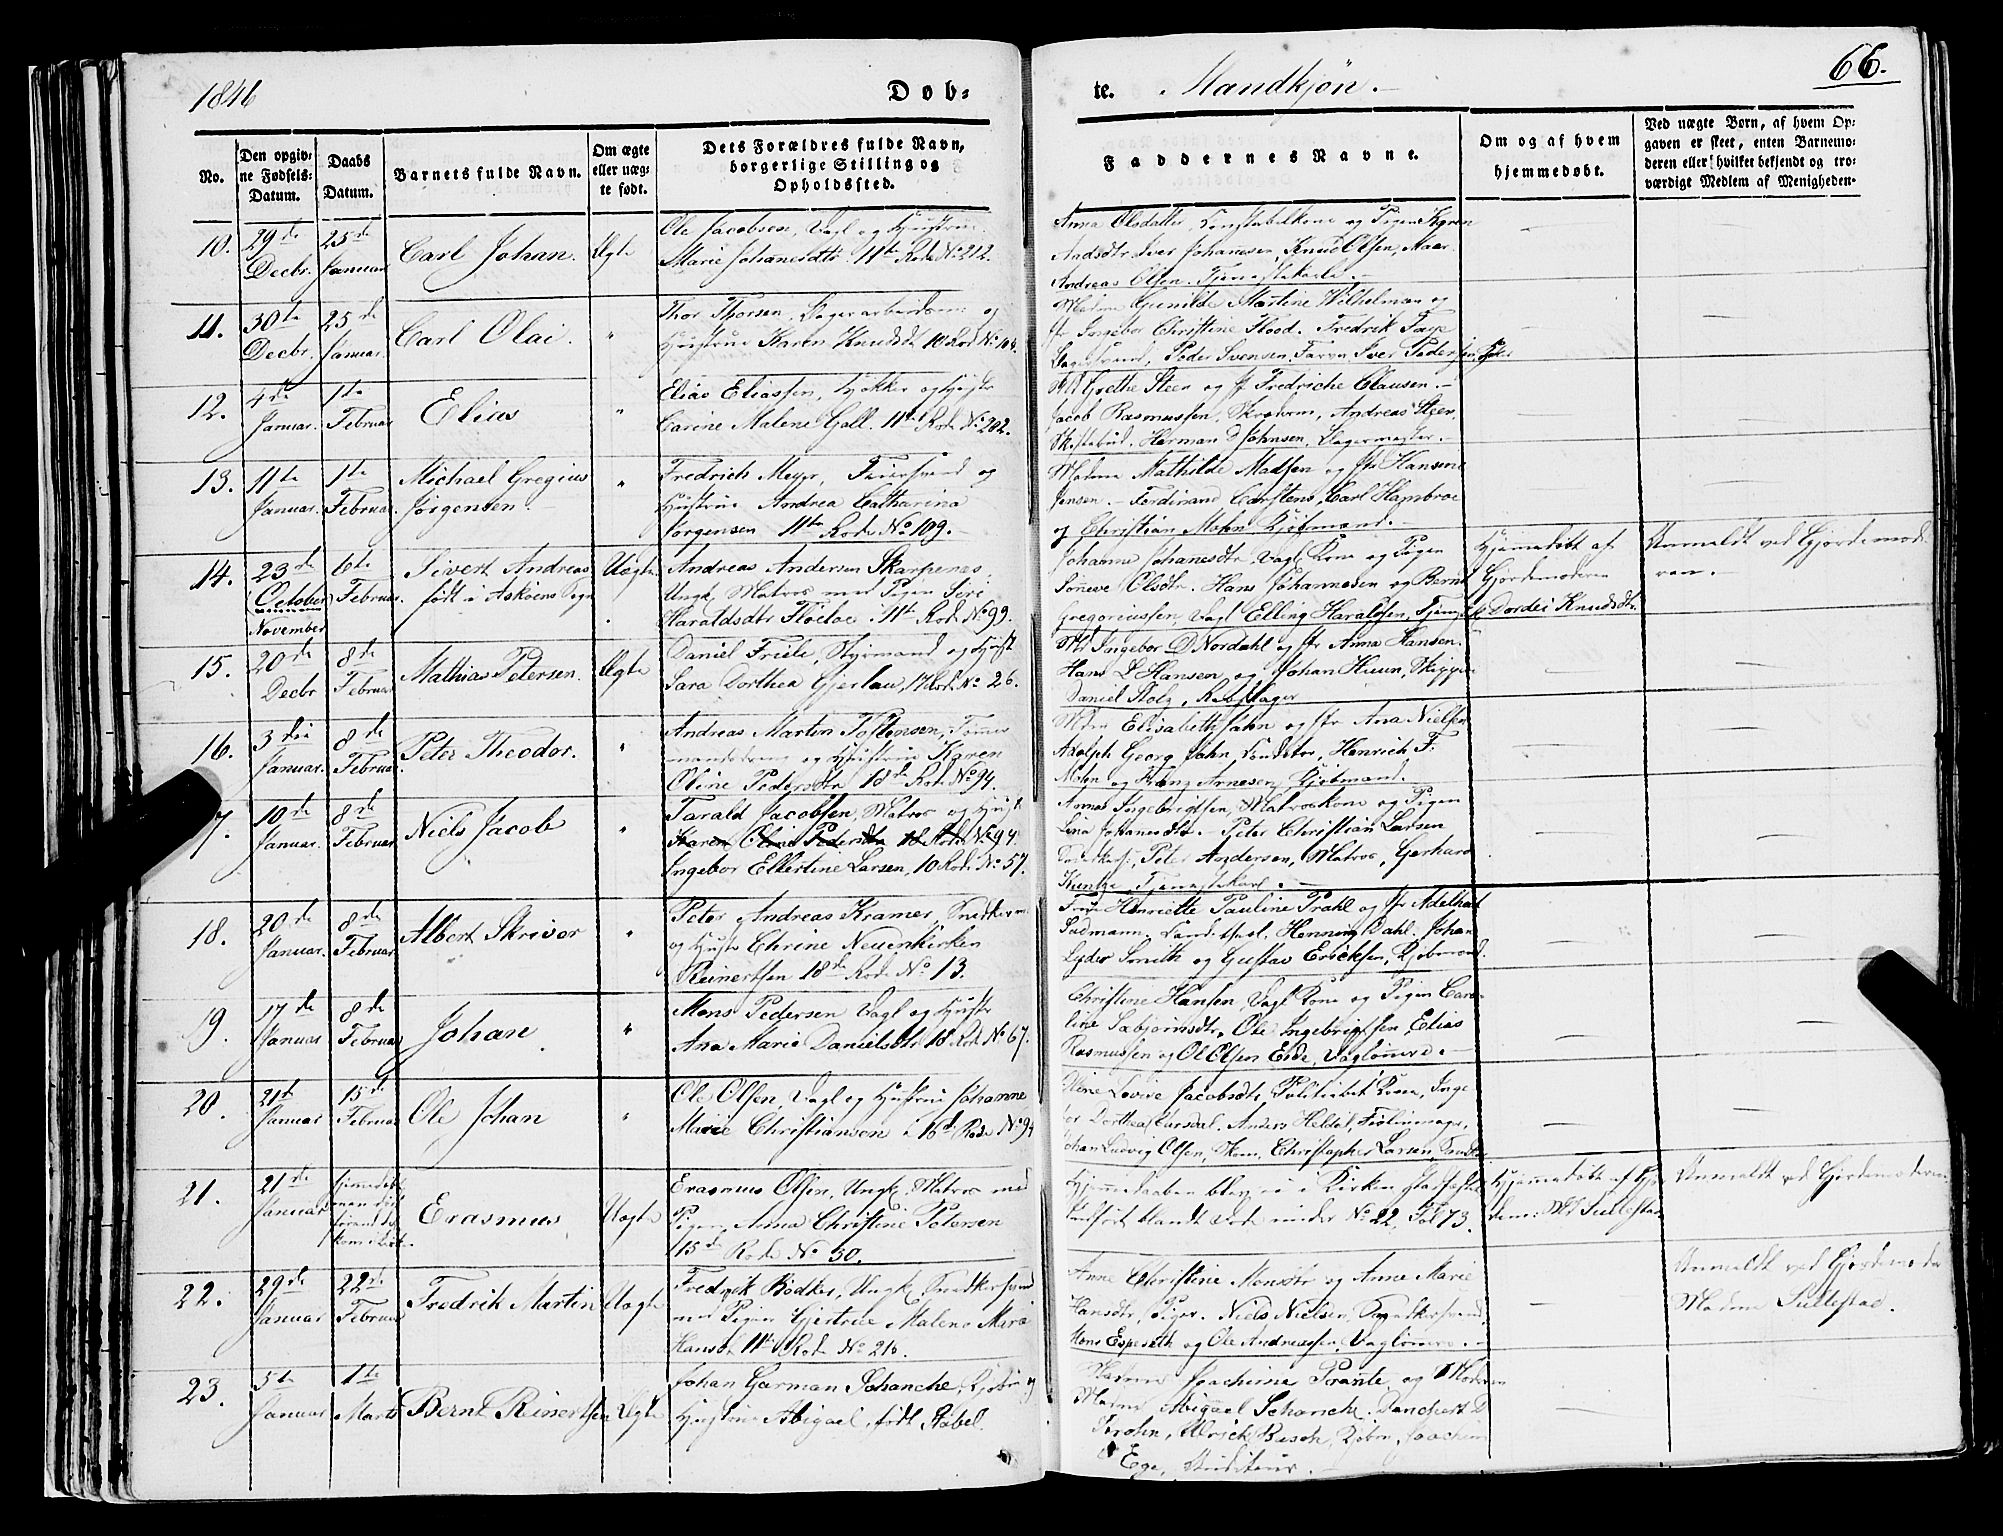 1846
Døb-
te.
Mandkjøn.
66.
No.
Den opgiv-
ne Fødsels-
Datum.
Daabs
Datum.
Barnets fulde Navn.
Om ægte
eller uæg-
te født.
Dets Forældres fulde Navn,
borgerlige Stilling og
Opholdssted.
Faddernes Navne.
Om og af hvem
hjemmedøbt.
Ved uægte Børn, af hvem Op-
gaven er skeet, enten Barnemo-
deren eller hvilket bekjendt og tro-
værdigt Medlem af Menigheden.
10.
29de
Decbr.
25de
Januar
Carl Johan.
Ægte
Ole Jacobsen, Vagl og Hustrue
Marie Johanesdtr. 11te Rode No 212.
Anna Olsdatter, Konstabelkone og Pigen Karen
Iver Johannesen, Knud Olsen,
Andreas Olsen, Tjenestekarle.
11.
30te
Decbr.
25de
Januar.
Carl Olai
"
Thor Thorsen, Dagarbeider og
Hustrue Karen Knudsdtr 10 Rode No 104.
Madme Gunilde Martine Wilhelmsen og
Jfr Ingebor Christine Flood. Fredrik
Peder Svensen, Faren Iver Pedersen
12.
4de
Januar.
1te
Februar
Elias
"
Elias Eliassen, og Hustr
Carine Malene Gall. 11te Rode No 202.
Md Grethe Steen og Jf Fredriche Clausen.
Jacob Rasmussen, Andreas Steen,
Herman D Johnsen, Lagermester.
13.
11te
Januar.
1te
Februar.
Michael Gregius
Jørgensen
"
Fredrich Meyer, og
Hustrue Andrea Catharina
Jørgensen 11te Rode No 109.
Madme Mathilde Madsen og Jfr Hansine
Jensen. Ferdinand Carstens, Carl Hambroe
og Christian Mohn Kjøbmænd.
14.
23de
October
November
6te
Februar.
Sivert Andreas
født i Askøens Sogn
Uægte
Andreas Andersen Skarpenes,
Ungk. Matros med Pigen Siri
Haraldsdtr Floetoe. 11te Rode No 99.
Johanne Johanesdtr. Vagl Kone og Pigen
Synneve Olsdtr. Hans Johannesen og Bernt
Gregoriussen, Vagl Elling Haraldsen,
Hjemmedøbt af
Gjordemoderen
Dordei Knudsdtr.
Anmeldt ved Gjordemode-
ren.
15.
20de
Decbr
8de
Februar
Mathias Petersen.
Ægte
Daniel Friele, Styrmand og Hustr
Sara Dorthea Gjertau, 17 Rode No 26.
Md Ingebor D Nordahl og Jfr Anna Hansen.
Hans L Hansen og Johan Huun, Skipper
Daniel Stolz, Rebslager
16.
3die
Januar.
8de
Februar.
Peter Theodor.
"
Andreas Martin Tostensen, Tømmer-
mandsdreng og Hustrue Karen
Oline Pedersdtr 18de Rode No 94.
Mdm Elisabeth Jahn og Jfr Ana Nielsen
Adolph Georg Jahn, Henrich F.
Mohn og Frantz Arnesen, Kjøbmænd.
17.
10de
Januar.
8de
Februar.
Niels Jacob
"
Tarald Jacobsen, Matros og Hustr
Karen Oline Pedersdtr 18 Rode No 94.
Ingebor Ellertine Larsen, 10 Rode No 57.
Anne Ingebrigtsen, Matroskone og Pigen
Lina Johanesdtr. Peter Christian Larsen
Peter Andersen, Matros, Gerhard
Kuntze, Tjenestekarl.
18.
20de
Januar.
8de
Februar.
Albert Skriver
"
Peter Andreas Kramer, Snedkerm
og Hustr Chrine Neuenkirken
Reinertsen 18de Rode No 13.
Frue Henriette Pauline Prahl og Jfr Adelheit
Sudmann. Henning Dahl. Johan
Lyder Smith og Gustav Ericksen, Kjøbmænd.
19.
17de
Januar
8de
Februar
Johan
"
Mons Pedersen Vagl og Hustr
Ana Marie Danielsdtr 18 Rode No 67.
Christine Hansen, Vagl Kone og Pigen Caro-
line Sæbjørnsdtr, Ole Ingebrigtsen, Elias
Rasmussen og Ole Olsen Eide, Vaglønnere.
20.
21de
Januar
15de
Februar
Ole Johan
"
Ole Olsen, Vagl og Hustrue Johanne
Marie Christiansen i 16de Rode No 94
Oline Lovise Jacobsdtr, Politibet Kone, Inge-
bor Dorthea Aarsdal. Anders Heldal, Fiolinmager,
Johan Ludvig Olsen, Skom, Christopher Larsen,
21.
21de
Januar
Hjemmedøbt
Erasmus
Uægte
Erasmus Olsen, Ungk. Matros med
Pigen Anna Christine Petersen
15de Rode No 50.
Hjemmedaaben blev ei i Kirken stadfæstet
Indført blandt Døde under No 22, Fol 73.
Hjemmedøbt af Gjor-
dem: Md Sullestad
Anmeldt ved Gjordemoderen
22.
29de
Januar
22de
Februar
Fredrik Martin
Uægte
Fredrik Bødker, Ungk, Snedkersvend
med Pigen Gjertrue Malene Marie
Hansdt 11te Rode No 216.
Anne Christine Monsdtr og Anne Marie
Hansdtr, Piger. Niels Nielsen, Snedkersvend,
Mons Espeseth og Ole Andreassen, Vaglønnere.
Anmeldt ved Gjordemoder
Madme Sullestad.
23.
5te
Januar
1te
Marts
Bernt Reinertsen
Ægte
Johan Garman Schancke, Kjøbm og
Hustrue Abigael, født Stabel.
Madme Joachime Prante, og Moderen
Madme Abigael Schancke. Danckert D
Krohn, Ulrick Busch, Kjøbm, Joachim
Ege, Studiosus.